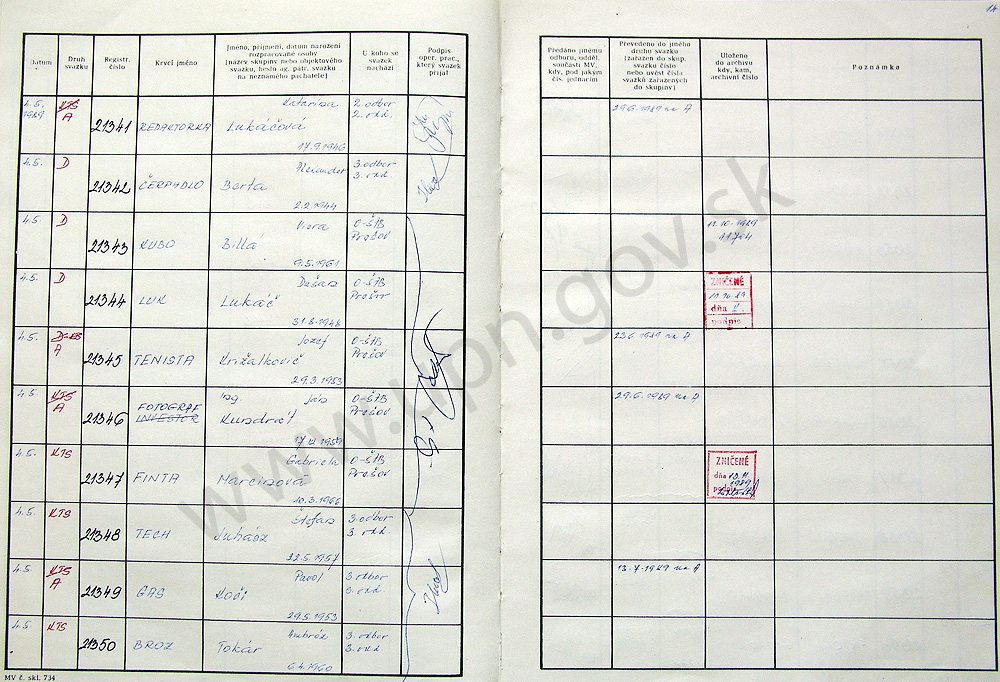 1A
Datum
Druh
svazku
Registr.
číslo
Krycí jméno
Jméno, příjmení, datum narození
rozpracované osoby
(název skupiny nebo objektového
svazku, heslo ag. pátr. svazku
na neznámého pachatele)
U koho se
svazek
nachází
Podpis
oper. prac.,
který svazek
přijal
Předáno jinému
odboru, odděl.
součásti MV,
kdy, pod jakým
čís. jednacím
Převedeno do jiného
druhu svazku
(zařazen do skup.
svazku číslo
nebo uvést čísla
svazků zařazených
do skupiny)
Uloženo
do archivu
kdy, kam,
archivní číslo
Poznámka
4.5.
1989
KTS
A
21341
REDAKTORKA
Katarína
Lukáčová
17.9.1946
2. odbor
2. odd.
29.6.1989 na A
4.5.
D
21342
ČERPADLO
Alexander
Berta
2.2.1944
3. odbor
3. odd.
4.5.
D
21343
KUBO
Viera
Billá
9.5.1961
O-ŠtB
Prešov
11.10.1989
4.5.
D
21344
LUK
Dušan
Lukáč
31.8.1946
O-ŠtB
Prešov
ZNIČENÉ
11.10.89
dňa
podpis
4.5.
A
21345
TENISTA
Jozef
Križalkovič
29.3.1953
O-ŠtB
Prešov
23.6.1989 na A
4.5.
KTS
A
21346
FOTOGRAF
INVESTOR
Ing. Ján
Kundrát
1959
O-ŠtB
Prešov
29.6.1989 na A
4.5.
KTS
21347
FINTA
Gabriela
Marcinová
10.3.1966
O-ŠtB
Prešov
ZNIČENÉ
dňa
1989
podpis
4.5.
KTS
21348
TECH
Štefan
Juhász
22.5.1957
3. odbor
3. odd.
4.5.
KTS
A
21349
GAS
Pavol
Koči
29.5.1953
3. odbor
3. odd.
13.7.1989 na A
4.5.
KTS
21350
BROZ
Ambróz
Tokár
6.4.1960
3. odbor
3. odd
MV č. skl. 734
www.upn.gov.sk